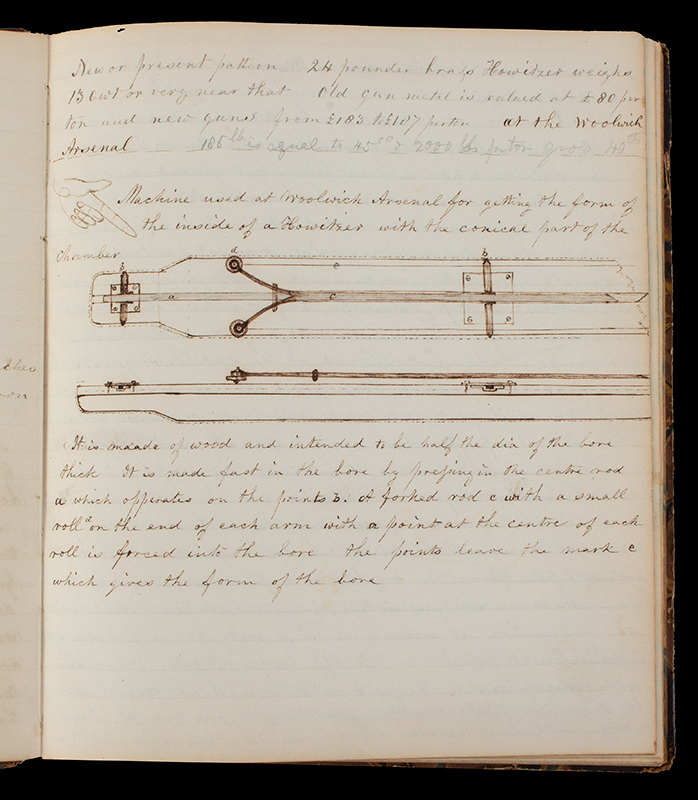 New or present pattern 24 pounder brass Howitzer weighs
13 Cwt or very near that Old gun metal is valued at £80 per
ton and new guns from £183 to £187 per ton at the Woolwich
Arsenal 186 lb is equal to 45 2000 lbs
Machine used at Woolwich Arsenal for getting the form of
the inside of a Howitzer with the conical part of the
Chamber
b d e b
a c
It is maade of wood and intended to be half the dia of the bore
thick It is made fast in the bore by pressing in the centre rod
a which opperates on the points b. A forked rod c with a small
roll d on the end of each arm with a point at the centre of each
roll is forced into the bore the points leave the mark e
which gives the form of the bore